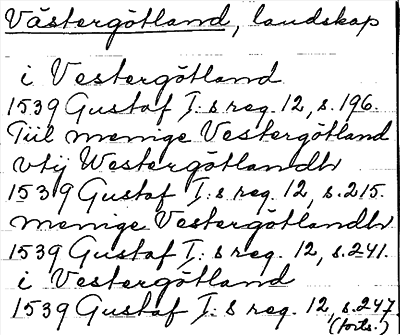 Västergötland, landskap
i Vestergötland
1539 Gustaf I:s reg. 12, s. 196.
Till menige Vestergötland
vtij Westergötlandh
1539 Gustaf I:s reg. 12, s. 215.
menige Vestergötlandh
1539 Gustaf I:s reg. 12, s. 241.
i Vestergötland
1539 Gustaf I:s reg. 12, s. 247
(forts.)